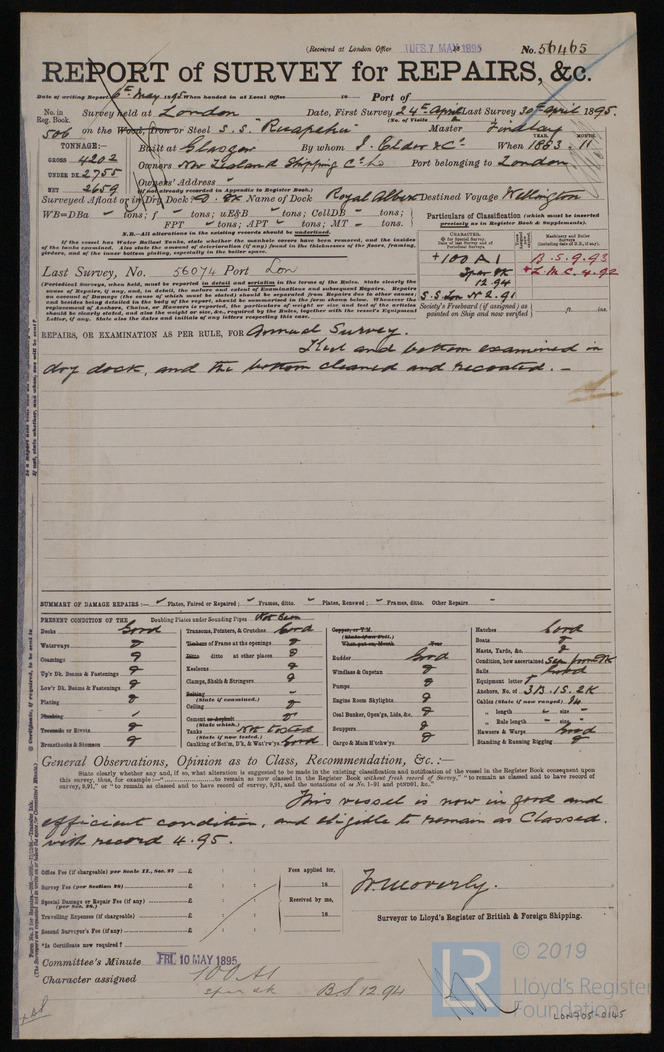 (Received at London Office TUES. 7 MAY 1895 No. 56465
REPORT of SURVEY for REPAIRS, &c.
Date of writing Report 6th May 1895 When handed in at Local Office 18 Port of
No. in Reg. Book. Survey held at London Date, First Survey 24th April Last Survey 30th April 1895.
(No. of Visits
506 on the Wood, Iron or Steel S.S. "Ruapehu" Master Findlay
TONNAGE:— Built at Glasgow By whom J. Elder & Co. When 1883 MONTHS. 11
GROSS 4202
UNDER DK. 2755 Owners New Zealand Shipping Co. Ld Port belonging to London
NET 2659 Owners' Address
(if not already recorded in Appendix to Register Book.)
Surveyed Afloat or in Dry Dock? Name of Dock Royal Albert Destined Voyage Wellington
WB=DBa tons; f tons; uE&B tons; CellDB tons;
FPT tons; APT tons; MT tons.
N.B.—All alterations in the existing records should be underlined.
If the vessel has Water Ballast Tanks, state whether the manhole covers have been removed, and the insides of the tanks examined. Also state the amount of deterioration (if any) found in the thicknesses of the floors, framing, girders, and of the inner bottom plating, especially in the boiler space.
Particulars of Classification (which must be inserted precisely as in Register Book & Supplements).
CHARACTER.
Machinery and Boiler Surveys
+100 A1 B.S. 9.93
Spar Dk +L.M.C. 4.92
12.94
S.S. Lon No 2. 91
Society's Freeboard (if assigned) as painted on Ship and now verified ft. ins.
Last Survey, No. 56074 Port Lon
(Periodical Surveys, when held, must be reported in detail and seriatim in the terms of the Rules. State clearly the cause of Repairs, if any, and, in detail, the nature and extent of Examinations and subsequent Repairs. Repairs on account of Damage (the cause of which must be stated) should be separated from Repairs due to other causes; and besides being detailed in the body of the report, should be summarised in the form shown below. Whenever the replacement of Anchors, Chains, or Hawsers is reported, the particulars of weight or size and test of the articles should be clearly stated, and also the weight or size, &c., required by the Rules, together with the vessel's Equipment Letter, if any. State also the dates and initials of any letters respecting this case.
REPAIRS, OR EXAMINATION AS PER RULE, FOR Annual Survey.
Keel and bottom examined in
dry dock, and the bottom cleaned and recoated. —
SUMMARY OF DAMAGE REPAIRS:— Plates, Faired or Repaired; Frames, ditto. Plates, Renewed; Frames, ditto. Other Repairs
PRESENT CONDITION OF THE Doubling Plates under Sounding Pipes Not Seen
Decks Good
Waterways
Coamings
Up'r Dk. Beams & Fastenings
Low'r Dk. Beams & Fastenings
Plating
Planking
Treenails or Rivets
Breasthooks & Stemson
Transoms, Pointers, & Crutches Good
Timbers of Frame at the openings
Ditto ditto at other places
Keelsons
Clamps, Shelfs & Stringers
Salting
(State if examined.)
Ceiling
Cement or Asphalt
(State which.)
Tanks Not tested
(State if now tested.)
Caulking of Bot'm, D'k, & Wat'rw'ys Good
Copper, or Y.M.
(State if on Felt.)
When put on, Month Year
Rudder Good
Windlass & Capstan
Pumps
Engine Room Skylights
Coal Bunker, Open'gs, Lids, &c.
Scuppers
Cargo & Main H'tchw'ys
Hatches Good
Boats
Masts, Yards, &c.
Condition, how ascertained See from Dk
Sails Good
Equipment letter
Anchors, No. of 3B. 1S. 2K
Cables (State if now ranged)
" length " size
" Rule length " size
Hawsers & Warps Good
Standing & Running Rigging
General Observations, Opinion as to Class, Recommendation, &c.:—
State clearly whether any, and if so, what alteration is suggested to be made in the existing classification and notification of the vessel in the Register Book consequent upon this survey, thus, for example:—"..............to remain as now classed in the Register Book without fresh record of Survey," "to remain as classed and to have record of survey, 9,91," or "to remain as classed and to have record of survey, 9,91, and the notations of
This vessel is now in good and
efficient condition, and eligible to remain as Classed.
with record 4.95.
Office Fee (if chargeable) per Scale II., Sec. 27 £
Survey Fee (per Section 28) £
Special Damage or Repair Fee (if any) £
(per Sec. 28.)
Travelling Expenses (if chargeable) £
Second Surveyor's Fee (if any) £
*Is Certificate now required?
Fees applied for, 18
Received by me, 18
Surveyor to Lloyd's Register of British & Foreign Shipping.
Committee's Minute FRI. 10 MAY 1895
Character assigned 100A1
spar dk BS 12 94
LR © 2019
Lloyd's Register
Foundation
LON705-0145